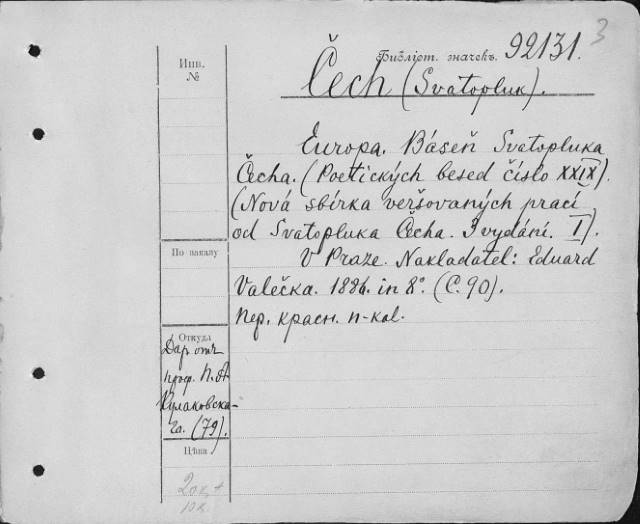 3
Библіот. значекъ. 92131.
Инв.
№
Čech (Svatopluk).
Europa. Báseň Svatopluka
Čecha. (Poetických besed číslo XXIX).
(Nová sbírka veršovaných prací
od Svatopluka Čecha. 3 vydání. I).
По заказу
V Praze. Nakladatel: Eduard
Valečka. 1886. in 8°. (C. 90).
Пер. красн. п-кол.
Откуда
Дар отъ
проф. П. А.
Кулаковска-
го. (79).
Цѣна
20к. +
10к.